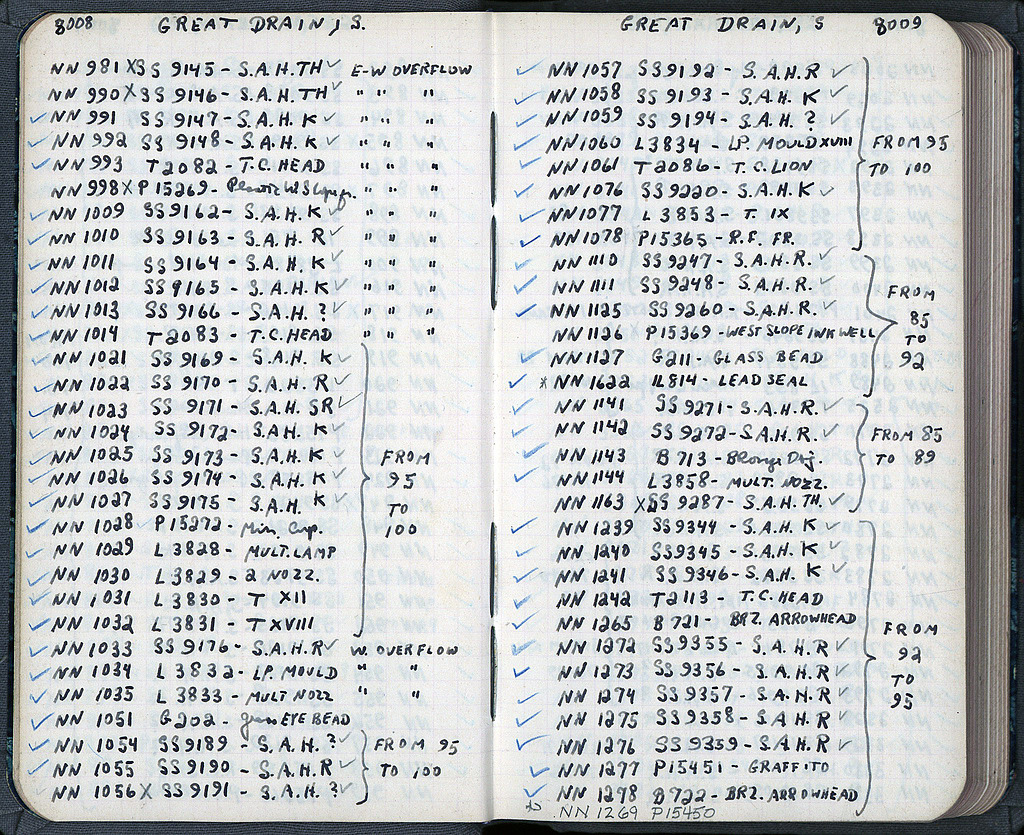 8008 GREAT DRAIN, S.
NN 981 X SS 9145 - S.A.H. TH ✓ E-W OVERFLOW
NN 990 X SS 9146 - S.A.H. TH ✓ " " "
✓ NN 991 SS 9147 - S.A.H. K ✓ " " "
✓ NN 992 SS 9148 - S.A.H. K ✓ " " "
✓ NN 993 T 2082 - T.C. HEAD " " "
NN 998 X P 15269 - W. Slope " " "
✓ NN 1009 SS 9162 - S.A.H. K ✓ " " "
✓ NN 1010 SS 9163 - S.A.H. R ✓ " " "
✓ NN 1011 SS 9164 - S.A.H. K ✓ " " "
✓ NN 1012 SS 9165 - S.A.H. K ✓ " " "
✓ NN 1013 SS 9166 - S.A.H. ? ✓ " " "
✓ NN 1014 T 2083 - T.C. HEAD " "
✓ NN 1021 SS 9169 - S.A.H. K ✓
✓ NN 1022 SS 9170 - S.A.H. R ✓
✓ NN 1023 SS 9171 - S.A.H. SR ✓
✓ NN 1024 SS 9172 - S.A.H. K ✓
✓ NN 1025 SS 9173 - S.A.H. K ✓ FROM
✓ NN 1026 SS 9174 - S.A.H. K ✓ 95
✓ NN 1027 SS 9175 - S.A.H. K ✓ TO
✓ NN 1028 P 15272 - Min. Cup. 100
✓ NN 1029 L 3828 - MULT. LAMP
✓ NN 1030 L 3829 - 2 NOZZ.
✓ NN 1031 L 3830 - T XII
✓ NN 1032 L 3831 - T XVIII
✓ NN 1033 SS 9176 - S.A.H. R ✓ W. OVERFLOW
✓ NN 1034 L 3832 - LP. MOULD " "
✓ NN 1035 L 3833 - MULT NOZZ " "
✓ NN 1051 G 202 - glass EYE BEAD
✓ NN 1054 SS 9189 - S.A.H. ? ✓ FROM 95
✓ NN 1055 SS 9190 - S.A.H. R ✓ TO 100
NN 1056 X SS 9191 - S.A.H. ? ✓
GREAT DRAIN, S 8009
✓ NN 1057 SS 9192 - S.A.H. R ✓
✓ NN 1058 SS 9193 - S.A.H. K ✓
✓ NN 1059 SS 9194 - S.A.H. ? ✓
✓ NN 1060 L 3834 - LP. MOULD XVIII FROM 95
✓ NN 1061 T 2086 - T.C. LION TO 100
✓ NN 1076 SS 9220 - S.A.H. K ✓
✓ NN 1077 L 3853 - T. IX
✓ NN 1078 P 15365 - R.F. FR.
✓ NN 1110 SS 9247 - S.A.H. R. ✓
✓ NN 1111 SS 9248 - S.A.H. R. ✓ FROM
✓ NN 1125 SS 9260 - S.A.H. R. ✓ 85
NN 1126 P 15369 - WEST SLOPE INKWELL TO
✓ NN 1127 G 211 - GLASS BEAD 92
✓ * NN 1622 IL 814 - LEAD SEAL
✓ NN 1141 SS 9271 - S.A.H. R. ✓
✓ NN 1142 SS 9272 - S.A.H. R. ✓ FROM 85
✓ NN 1143 B 713 - Bronze Obj. TO 89
✓ NN 1144 L 3858 - MULT. NOZZ.
NN 1163 X SS 9287 - S.A.H. TH. ✓
✓ NN 1239 SS 9344 - S.A.H. K
✓ NN 1240 SS 9345 - S.A.H. K ✓
✓ NN 1241 SS 9346 - S.A.H. K ✓
✓ NN 1242 T 2113 - T.C. HEAD
✓ NN 1265 B 721 - BRZ. ARROWHEAD FROM
✓ NN 1272 SS 9355 - S.A.H. R ✓ 92
✓ NN 1273 SS 9356 - S.A.H. R ✓ TO
✓ NN 1274 SS 9357 - S.A.H. R ✓ 95
✓ NN 1275 SS 9358 - S.A.H. R ✓
✓ NN 1276 SS 9359 - S.A.H. R ✓
✓ NN 1277 P 15451 - GRAFFITO
✓ NN 1278 B 722 - BRZ. ARROWHEAD
NN 1269 P 15450